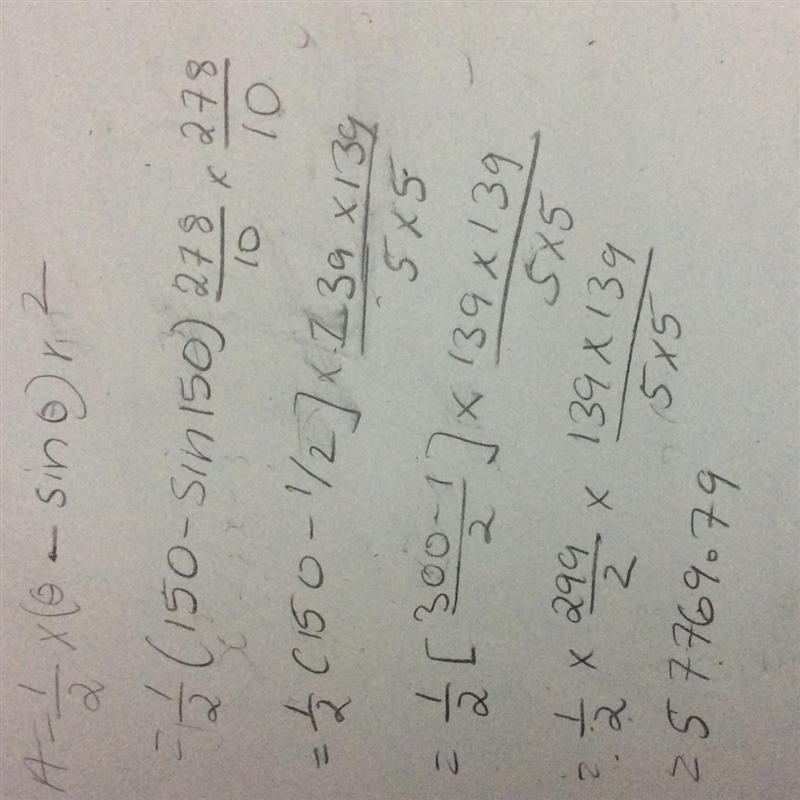 A = 1/2 × (θ - sin θ) r²
= 1/2 (150 - sin 150) 278/10 × 278/10
= 1/2 (150 - 1/2] × 139 × 139 / 5 × 5
= 1/2 [300 - 1 / 2] × 139 × 139 / 5 × 5
= 1/2 × 299/2 × 139 × 139 / 5 × 5
= 57769.79